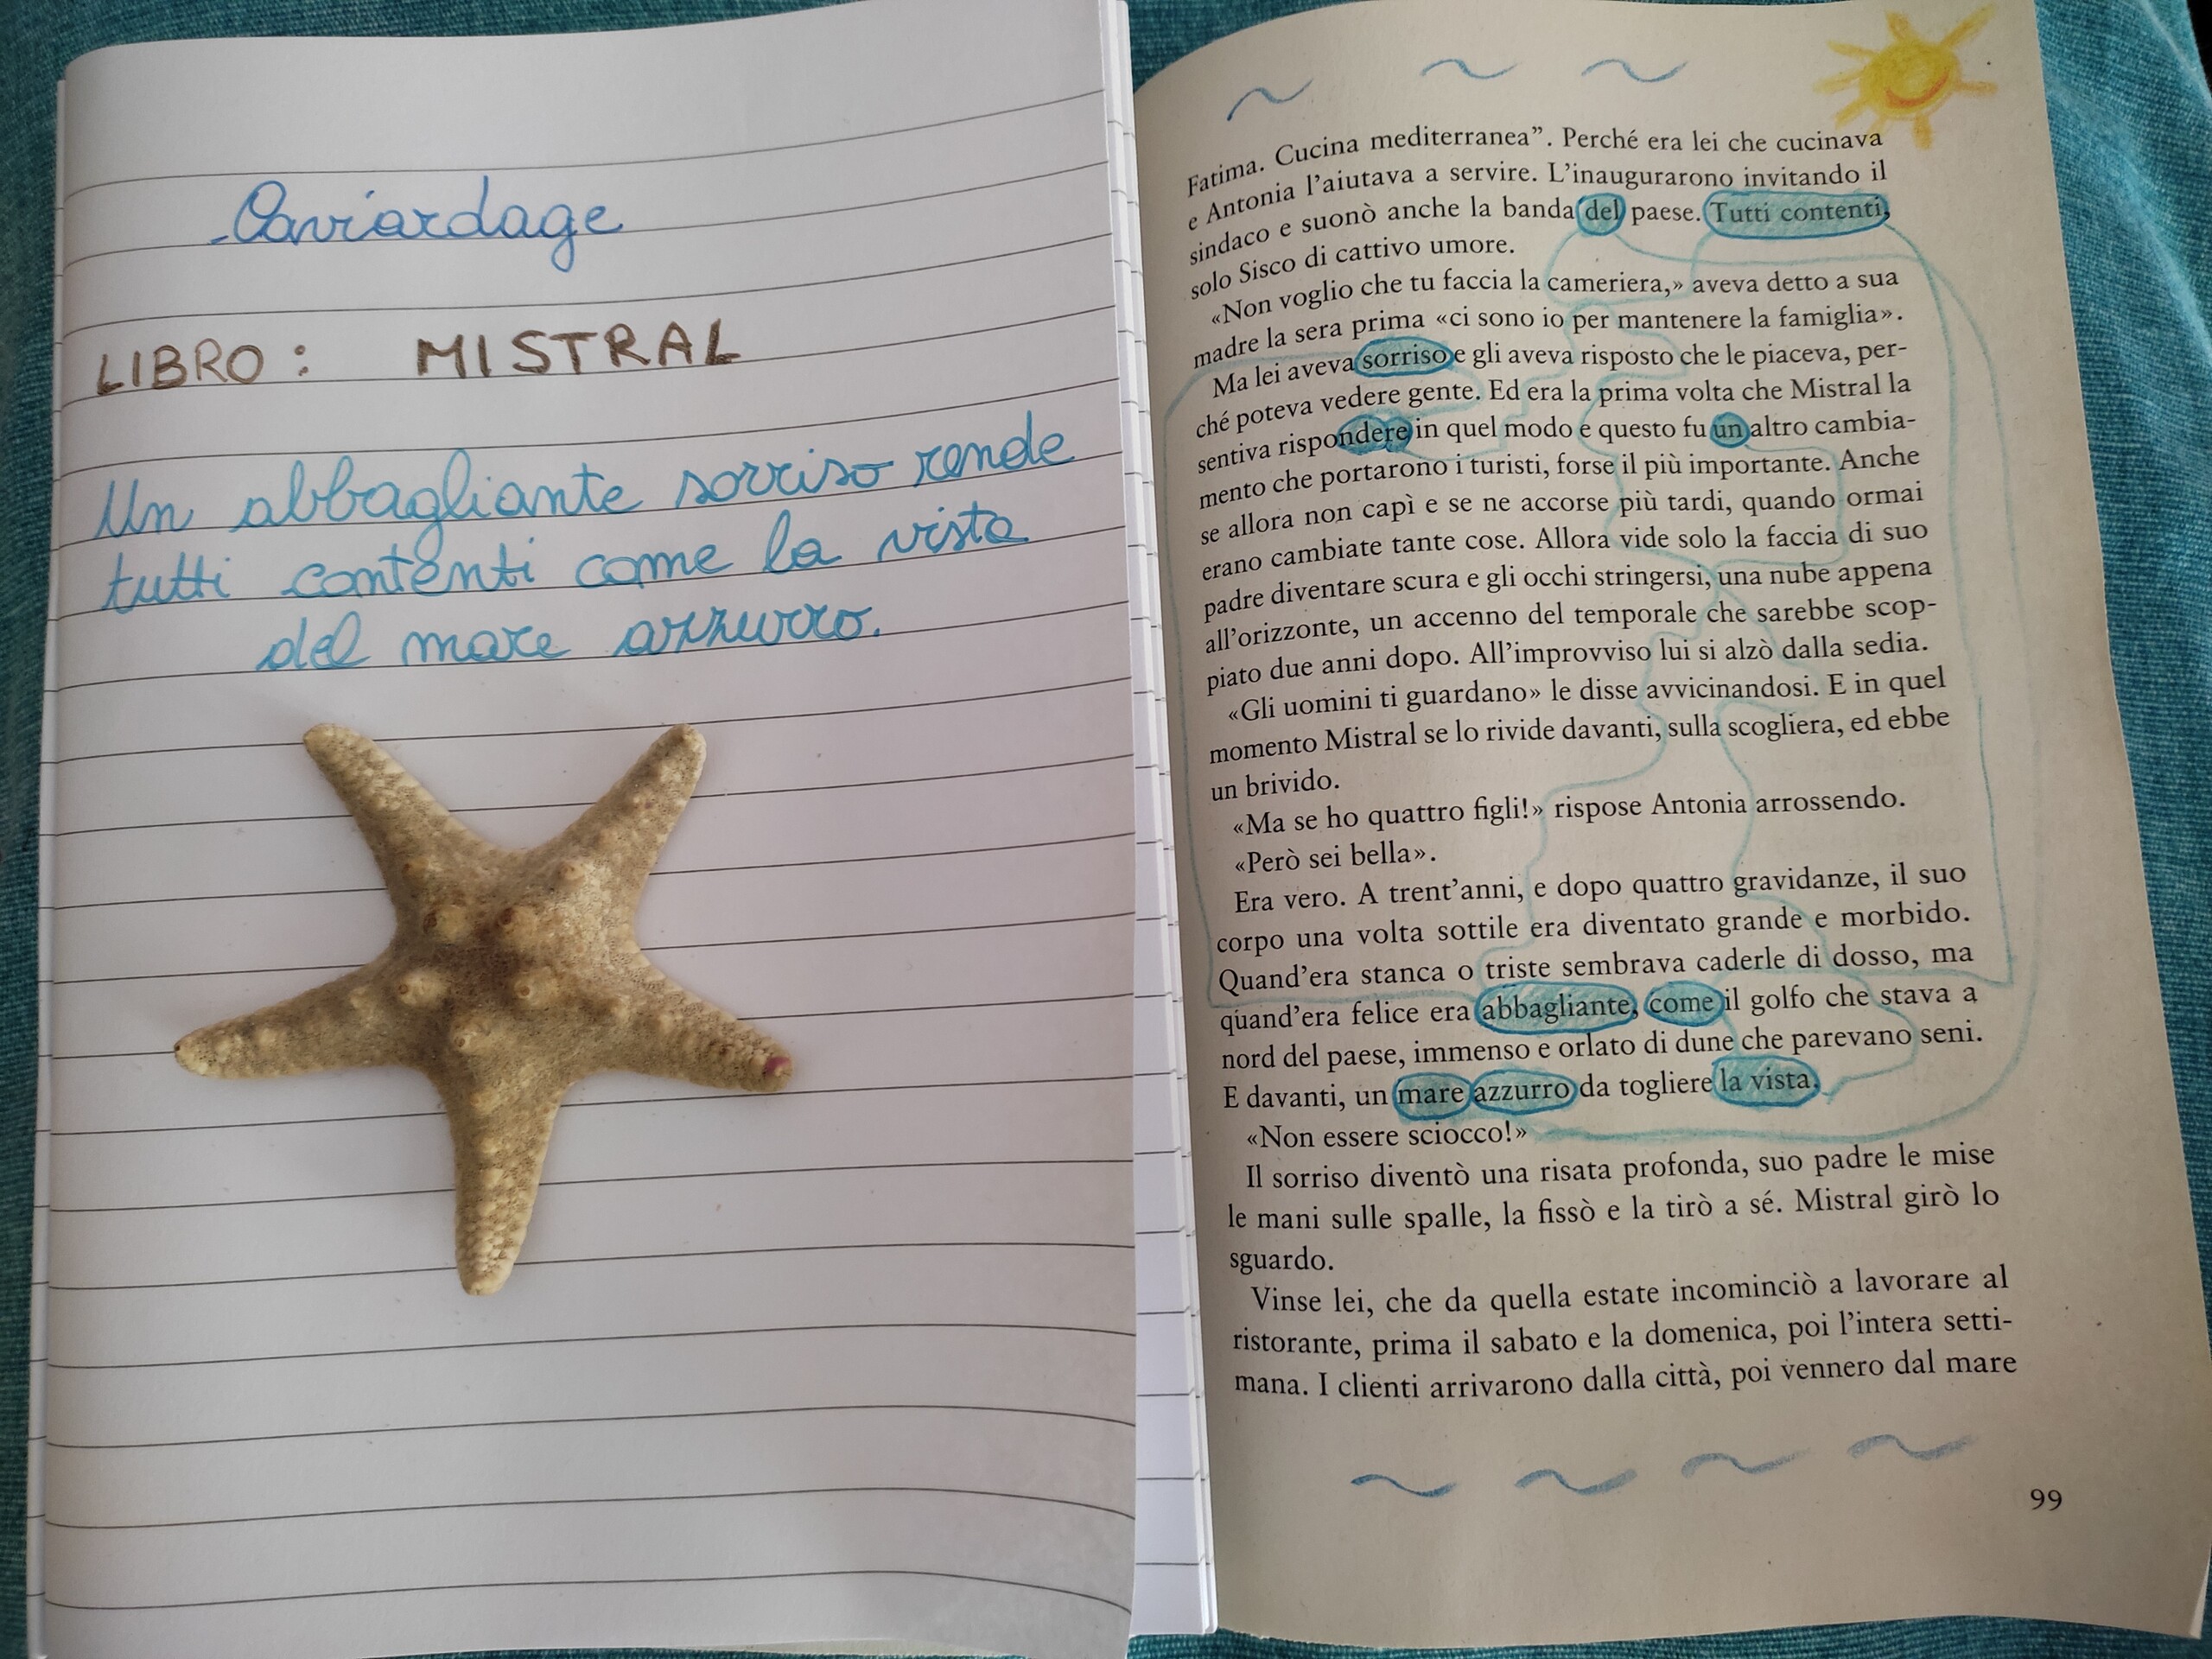 Caviardage
LIBRO: MISTRAL
Un abbagliante sorriso rende
tutti contenti come la vista
del mare azzurro.
Fatima. Cucina mediterranea”. Perché era lei che cucinava
e Antonia l’aiutava a servire. L’inaugurarono invitando il
sindaco e suonò anche la banda del paese. Tutti contenti,
solo Sisco di cattivo umore.
«Non voglio che tu faccia la cameriera,» aveva detto a sua
madre la sera prima «ci sono io per mantenere la famiglia».
Ma lei aveva sorriso e gli aveva risposto che le piaceva, per-
ché poteva vedere gente. Ed era la prima volta che Mistral la
sentiva rispondere in quel modo e questo fu un altro cambia-
mento che portarono i turisti, forse il più importante. Anche
se allora non capì e se ne accorse più tardi, quando ormai
erano cambiate tante cose. Allora vide solo la faccia di suo
padre diventare scura e gli occhi stringersi, una nube appena
all’orizzonte, un accenno del temporale che sarebbe scop-
piato due anni dopo. All’improvviso lui si alzò dalla sedia.
«Gli uomini ti guardano» le disse avvicinandosi. E in quel
momento Mistral se lo rivide davanti, sulla scogliera, ed ebbe
un brivido.
«Ma se ho quattro figli!» rispose Antonia arrossendo.
«Però sei bella».
Era vero. A trent’anni, e dopo quattro gravidanze, il suo
corpo una volta sottile era diventato grande e morbido.
Quand’era stanca o triste sembrava caderle di dosso, ma
quand’era felice era abbagliante, come il golfo che stava a
nord del paese, immenso e orlato di dune che parevano seni.
E davanti, un mare azzurro da togliere la vista.
«Non essere sciocco!»
Il sorriso diventò una risata profonda, suo padre le mise
le mani sulle spalle, la fissò e la tirò a sé. Mistral girò lo
sguardo.
Vinse lei, che da quella estate incominciò a lavorare al
ristorante, prima il sabato e la domenica, poi l’intera setti-
mana. I clienti arrivarono dalla città, poi vennero dal mare
99